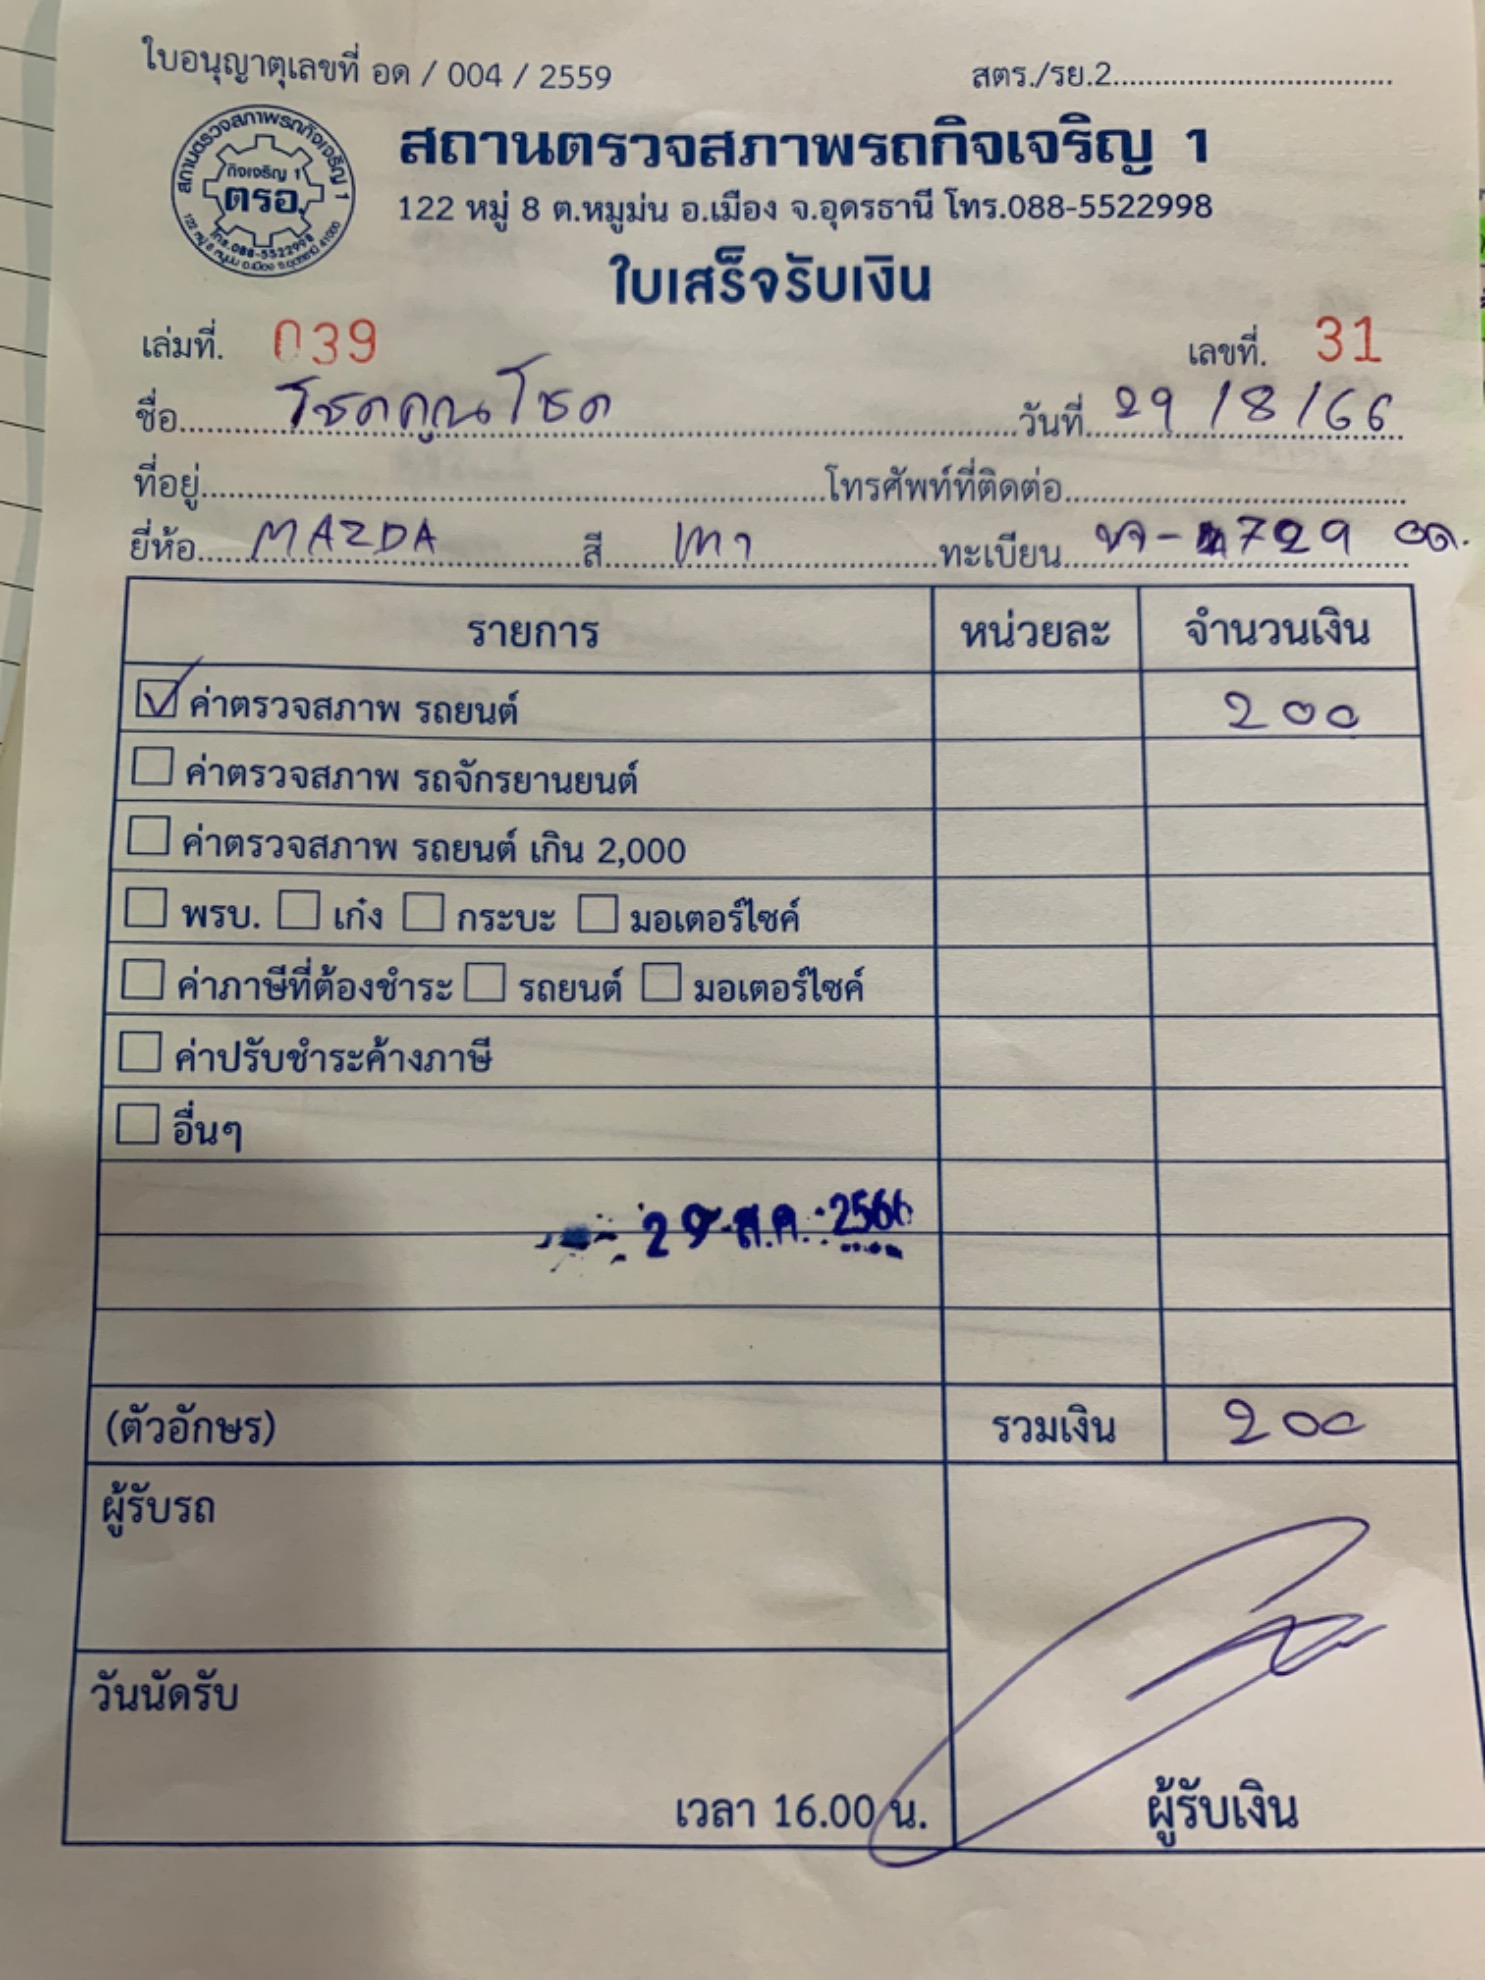 ใบอนุญาตุเลขที่ อด / 004 / 2559
สตร./รย.2
สถานตรวจสภาพรถกิจเจริญ 1
กิจเจริญ 1
ตรอ.
สถานตรวจสภาพรถกิจเจริญ 1
122 หมู่ 8 ต.หมูม่น อ.เมือง จ.อุดรธานี โทร.088-5522998
โทร.088-5522998
122 หมู่ 8 ต.หมูม่น อ.เมือง จ.อุดรธานี 41000
ใบเสร็จรับเงิน
เล่มที่. 039 เลขที่. 31
ชื่อ โชคคูณโชค วันที่ 29 / 8 / 66
ที่อยู่ โทรศัพท์ที่ติดต่อ
ยี่ห้อ MAZDA สี เทา ทะเบียน 729 อด.
รายการ หน่วยละ จำนวนเงิน
ค่าตรวจสภาพ รถยนต์ 200
ค่าตรวจสภาพ รถจักรยานยนต์
ค่าตรวจสภาพ รถยนต์ เกิน 2,000
พรบ. เก๋ง กระบะ มอเตอร์ไซค์
ค่าภาษีที่ต้องชำระ รถยนต์ มอเตอร์ไซค์
ค่าปรับชำระค้างภาษี
อื่นๆ
29 ส.ค. 2566
(ตัวอักษร) รวมเงิน 200
ผู้รับรถ
วันนัดรับ
เวลา 16.00 น.
ผู้รับเงิน